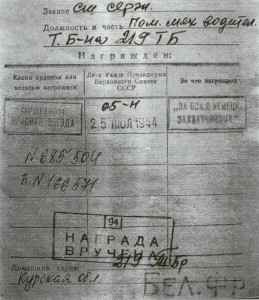 Звание ст. серж.
Должность и часть Пом. мех водител.
Т.Б-на 219 ТБ
Награжден:
Каким орденом или медалью награжден
Дата Указа Президиума Верховного Совета СССР
За что награжден
ОРДЕНОМ
КРАСНАЯ ЗВЕЗДА
05-н
25 ИЮЛ 1944
ЗАХВАТЧИКАМИ"
N 685504
Б.N 166571
94
НАГРАДА
ВРУЧЕНА
219 ТБр
Домашний адрес:
Курская обл
БЕЛ. Ф-Р